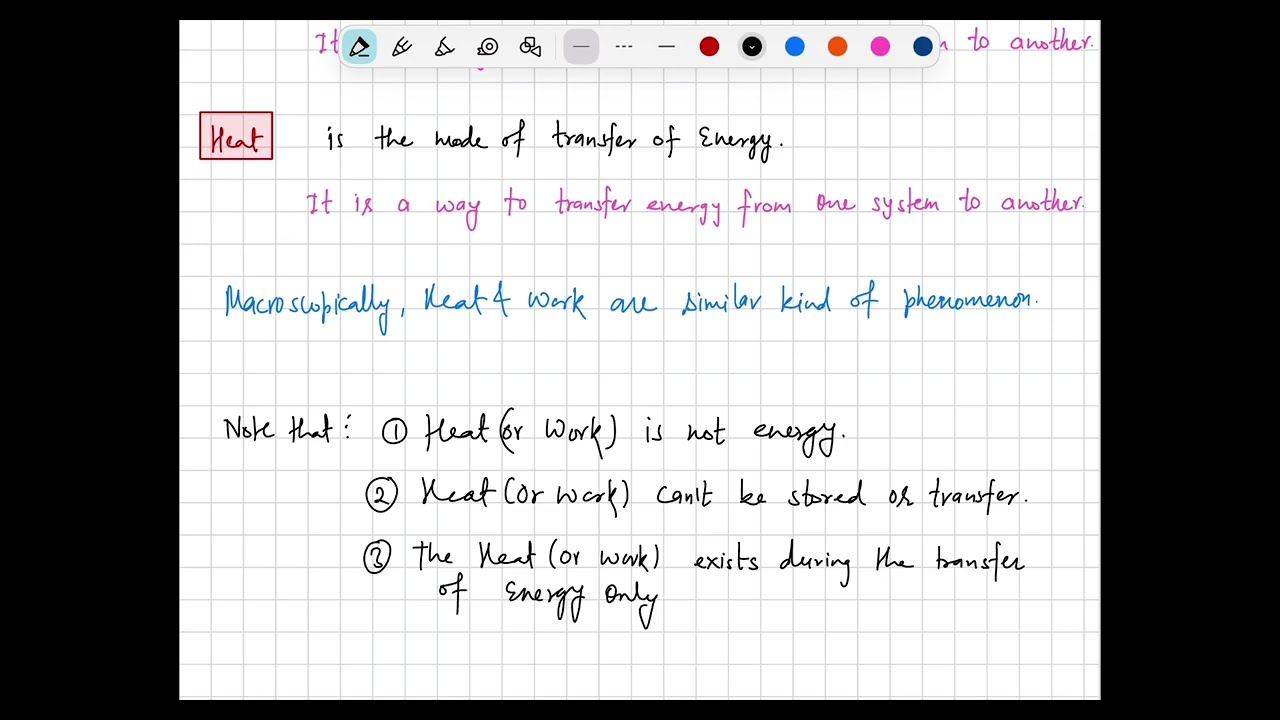 It n to another.
Heat is the mode of transfer of Energy.
It is a way to transfer energy from one system to another.
Macroscopically, Heat & Work are similar kind of phenomenon.
Note that: ① Heat (or Work) is not energy.
② Heat (or work) can't be stored or transfer.
③ The Heat (or work) exists during the transfer
of Energy only